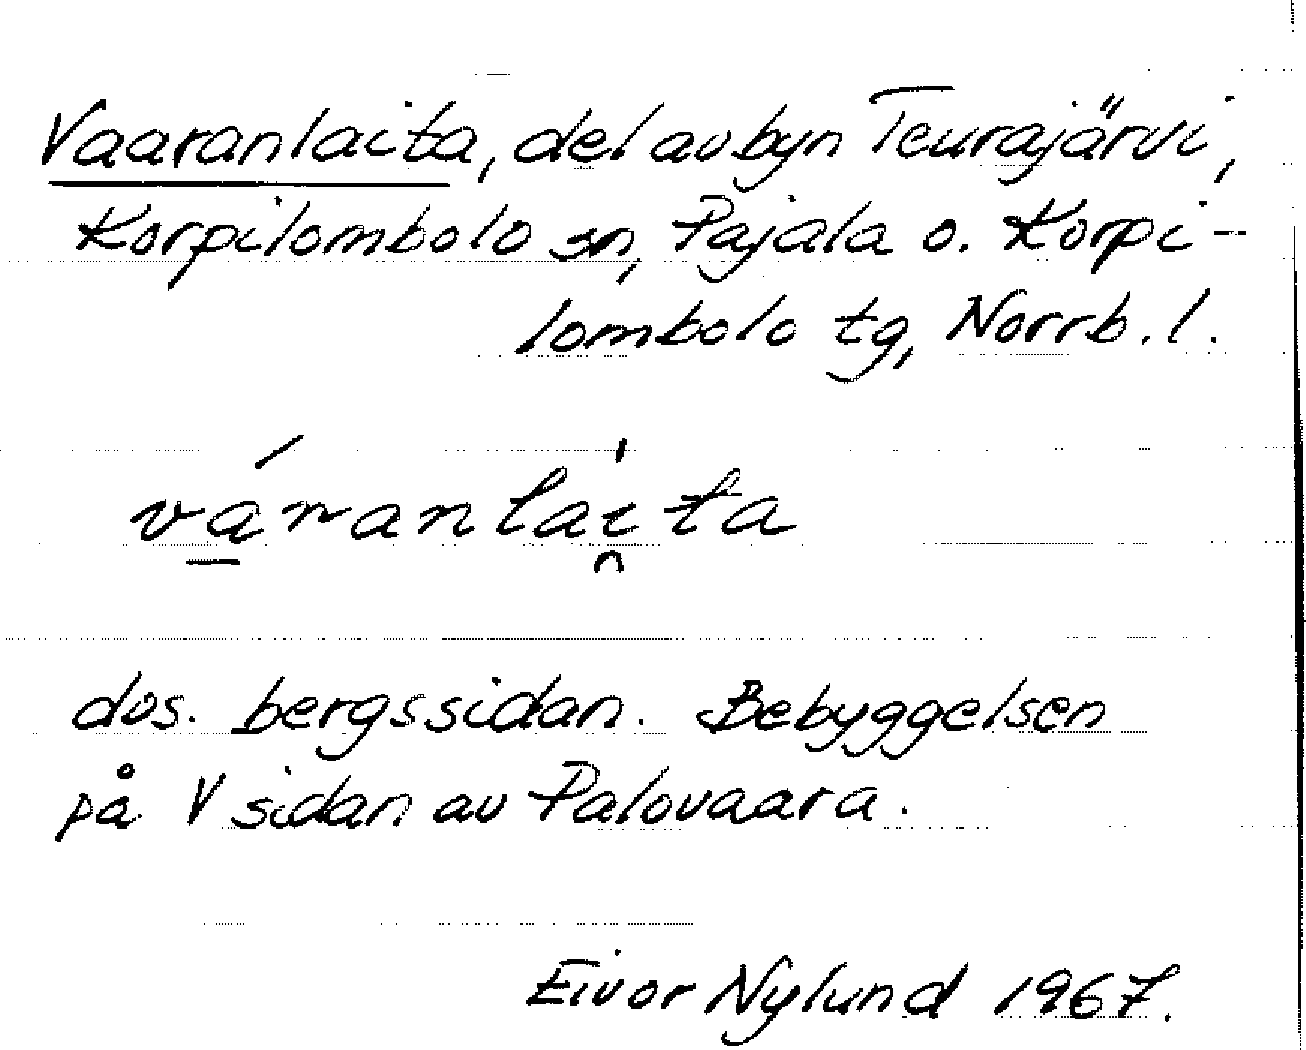 Vaaranlaita, del av byn Teurajärvi,
Korpilombolo sn, Pajala o. Korpi-
lombolo tg, Norrb. l.
vá̱ranlai̯ta
dvs. bergssidan. Bebyggelsen
på V sidan av Palovaara.
Eivor Nylund 1967.